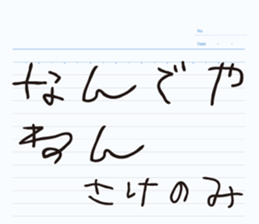 No.
Date ・ ・
なんでや
ねん
さけのみ